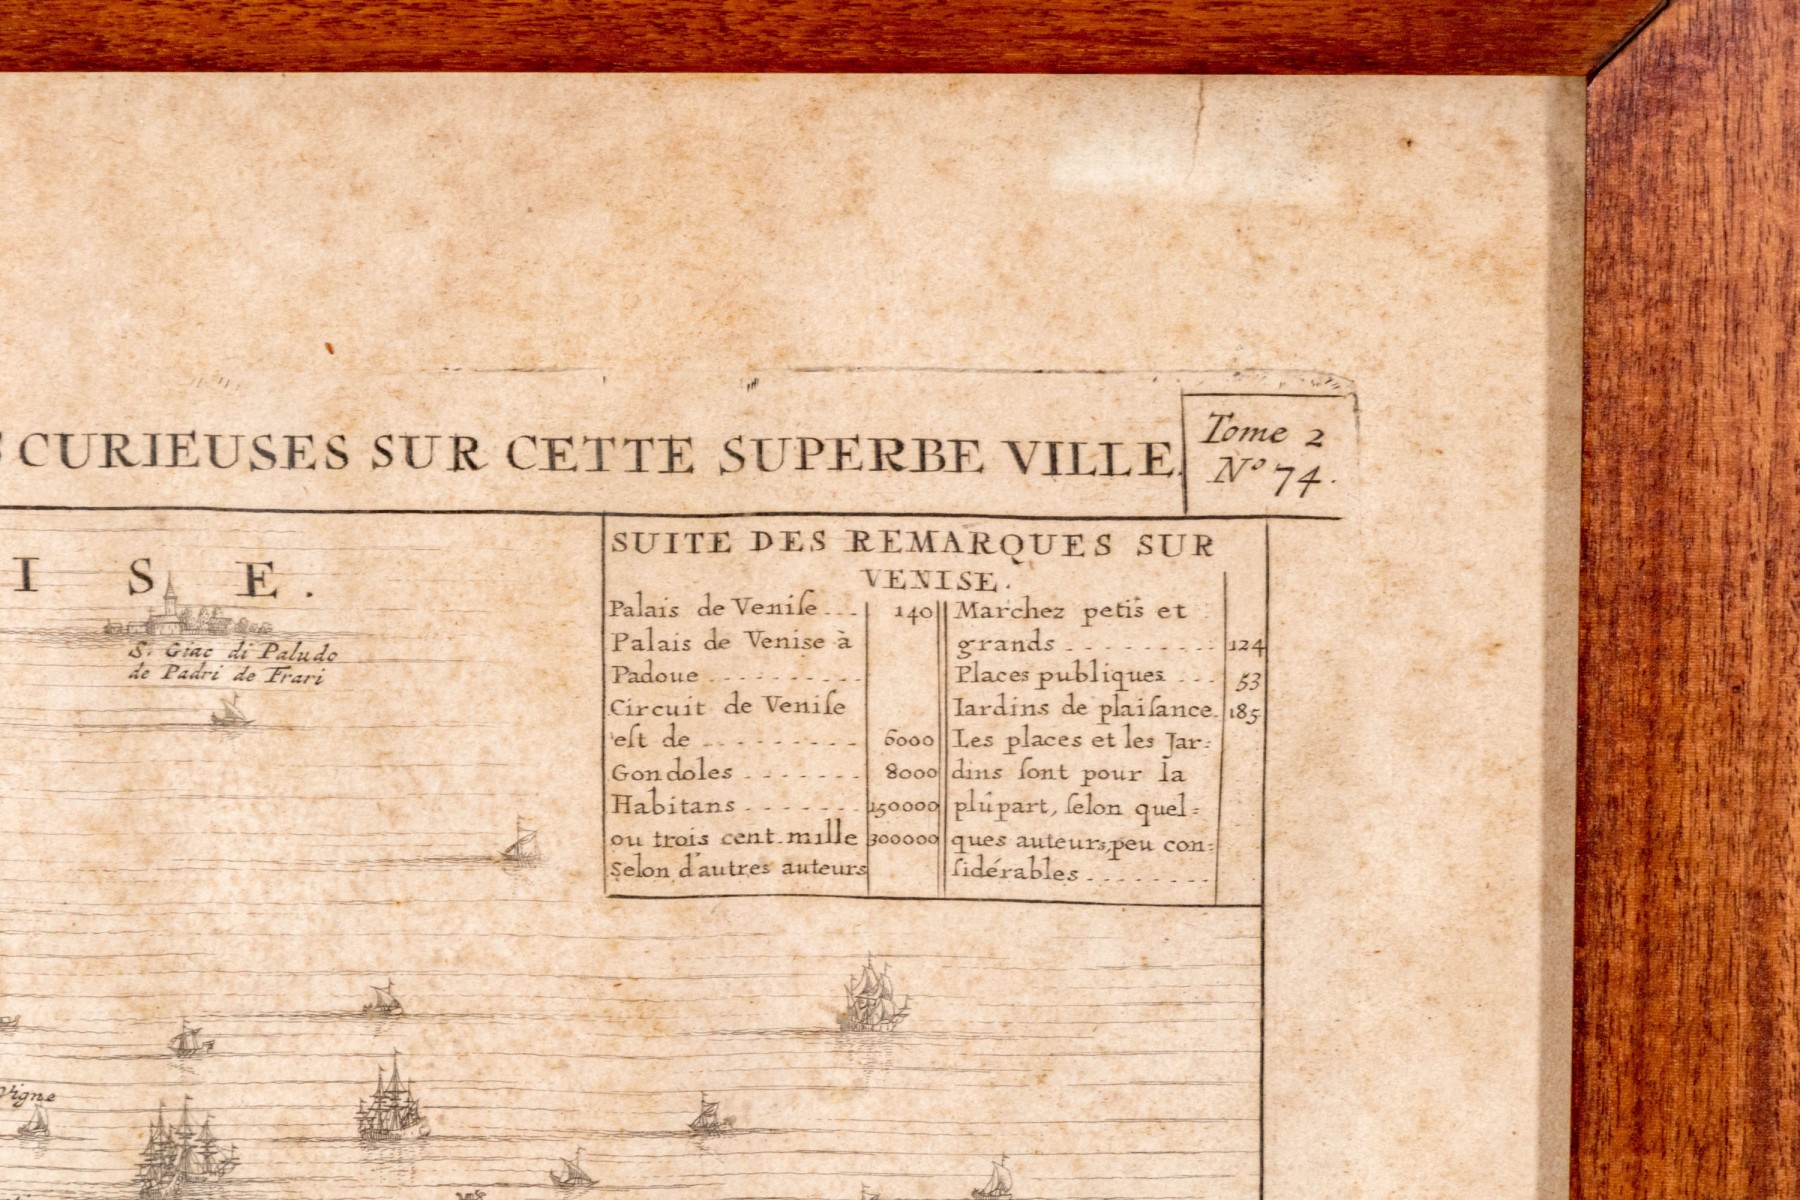 CURIEUSES SUR CETTE SUPERBE VILLE.
Tome 2
Nº 74.
I S E .
S. Giac di Paludo
de Padri de Frari
SUITE DES REMARQUES SUR
VENISE.
Palais de Veniſe... 140
Palais de Venise à
Padoue . . . . . . . . . .
Circuit de Veniſe
eſt de . . . . . . . . . . 6000
Gondoles . . . . . . . 8000
Habitans . . . . . . . 150000
ou trois cent mille 300000
Selon d'autres auteurs
Marchez petis et
grands . . . . . . . . . 124
Places publiques . . . 53
Iardins de plaiſance. 185
Les places et les Jar=
dins ſont pour la
plupart, ſelon quel=
ques auteurs, peu con=
ſidérables . . . . . . . .
Vigne